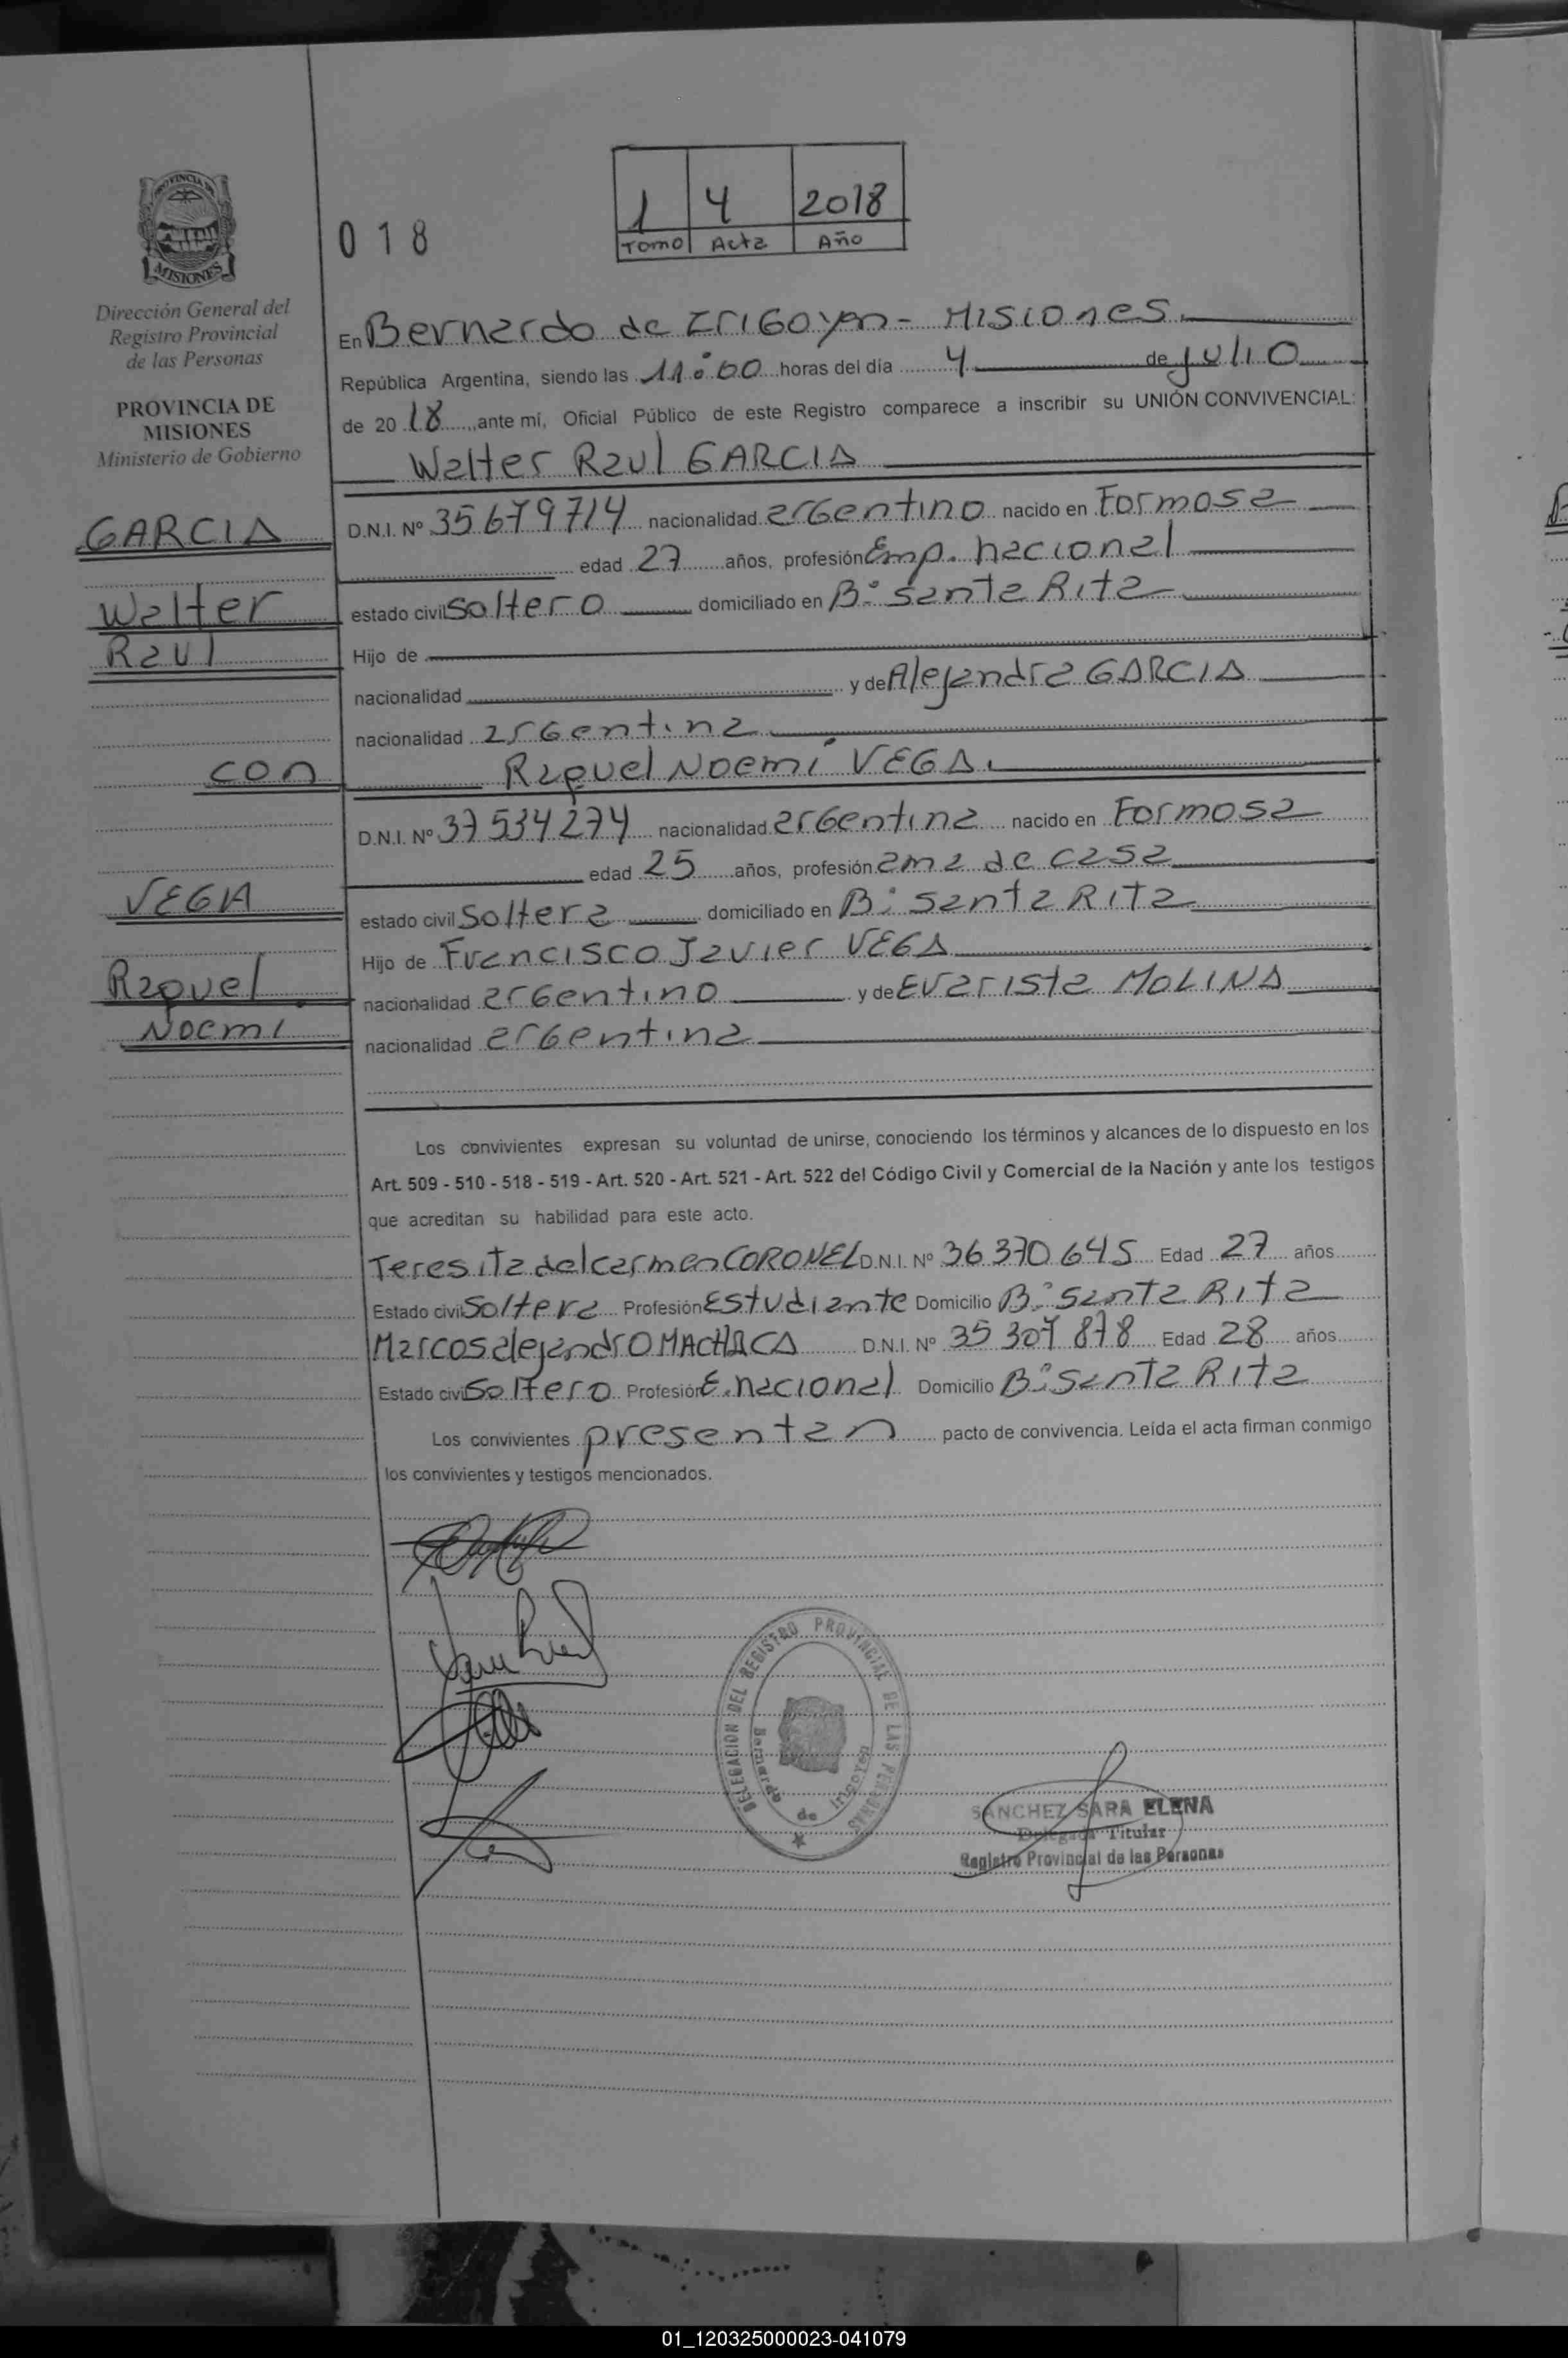 PROVINCIA DE
MISIONES
Dirección General del
Registro Provincial
de las Personas
PROVINCIA DE
MISIONES
Ministerio de Gobierno
GARCIA
Walter
Raul
con
VEGA
Raquel
Noemi
018
1 4 2018
Tomo Acta Año
En Bernardo de IRIGoyen - MISIONES.
República Argentina, siendo las 11:00 horas del día 4 de julio
de 2018, ante mí, Oficial Público de este Registro comparece a inscribir su UNIÓN CONVIVENCIAL:
Walter Raul GARCIA
D.N.I. Nº 35679714 nacionalidad argentino nacido en Formosa
edad 27 años, profesión Emp. nacional
estado civil soltero domiciliado en B: Santa Rita
Hijo de
nacionalidad y de Alejandra GARCIA
nacionalidad argentina
Raquel Noemí VEGA.
D.N.I. Nº 37534274 nacionalidad argentina nacido en Formosa
edad 25 años, profesión ama de casa
estado civil soltera domiciliado en B: Santa Rita
Hijo de Francisco Javier VEGA
nacionalidad argentino y de Evarista MOLINA
nacionalidad argentina
Los convivientes expresan su voluntad de unirse, conociendo los términos y alcances de lo dispuesto en los
Art. 509 - 510 - 518 - 519 - Art. 520 - Art. 521 - Art. 522 del Código Civil y Comercial de la Nación y ante los testigos
que acreditan su habilidad para este acto.
Teresita del carmen CORONEL D.N.I. Nº 36370645 Edad 27 años
Estado civil Soltera Profesión Estudiante Domicilio B: Santa Rita
Marcos alejandro MACHACA D.N.I. Nº 35307878 Edad 28 años
Estado civil Soltero Profesión E. nacional Domicilio B: Santa Rita
Los convivientes presentan pacto de convivencia. Leída el acta firman conmigo
los convivientes y testigos mencionados.
DELEGACION DEL REGISTRO PROVINCIAL DE LAS PERSONAS
Bernardo de Irigoyen
SANCHEZ SARA ELENA
Delegada Titular
Registro Provincial de las Personas
01_120325000023-041079